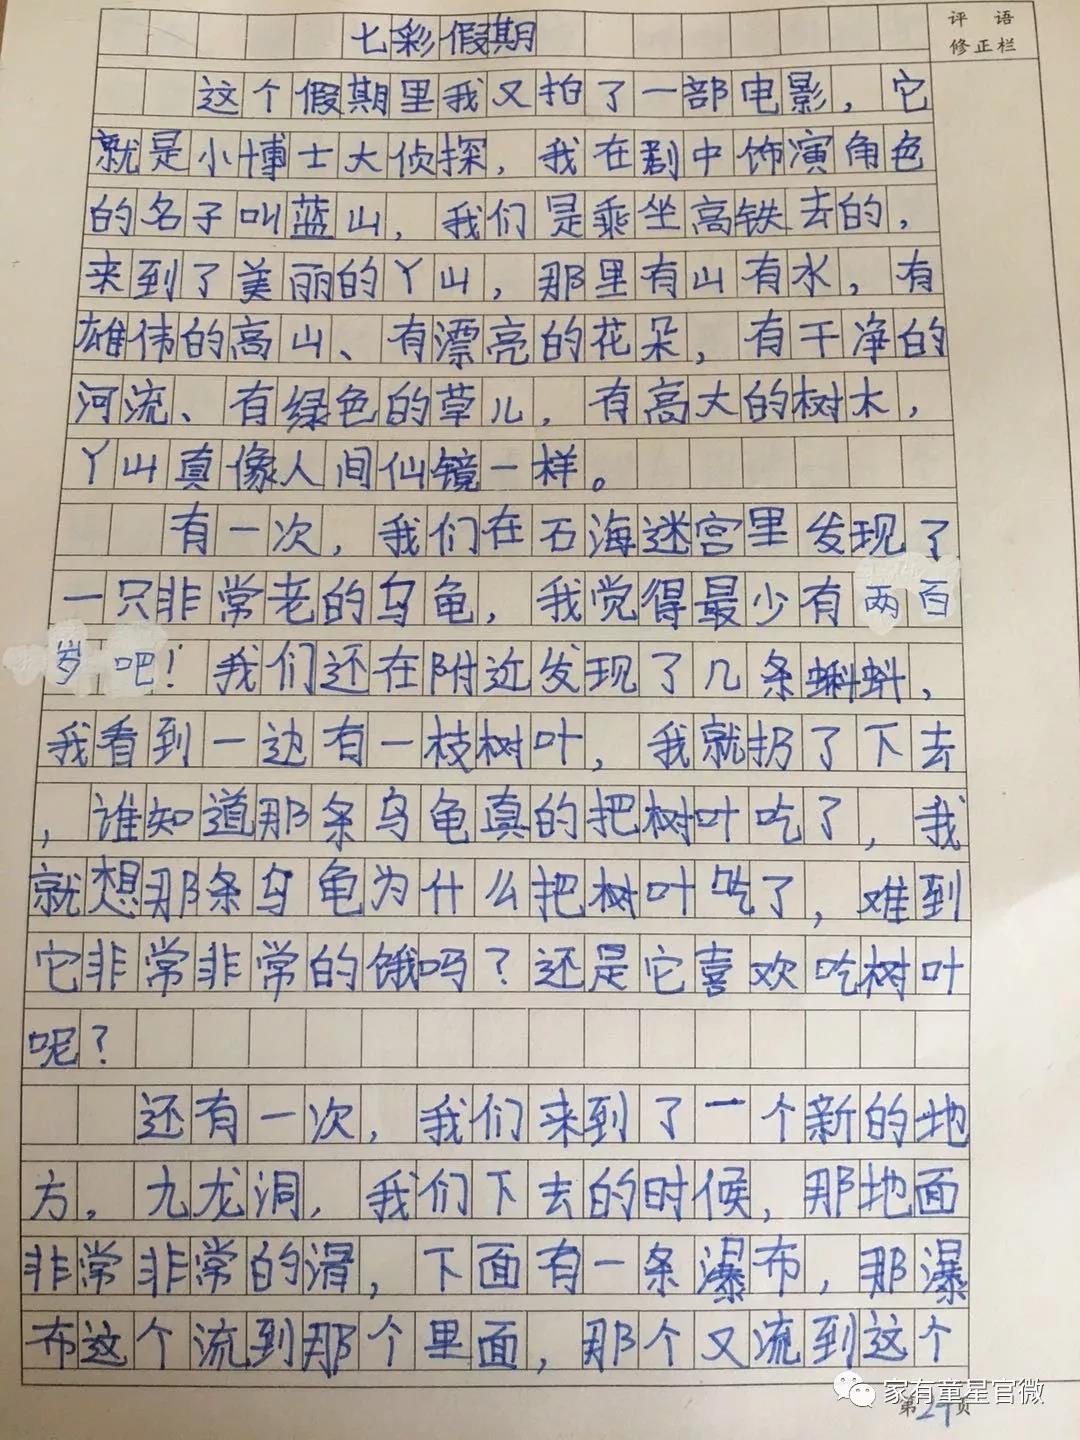 七彩假期
评语
修正栏
这个假期里我又拍了一部电影，它
就是小博士大侦探，我在剧中饰演角色
的名子叫蓝山，我们是乘坐高铁去的，
来到了美丽的丫山，那里有山有水，有
雄伟的高山、有漂亮的花朵，有干净的
河流、有绿色的草儿，有高大的树木，
丫山真像人间仙镜一样。
有一次，我们在石海迷宫里发现了
一只非常老的乌龟，我觉得最少有两百
岁吧！我们还在附近发现了几条蝌蚪，
我看到一边有一枝树叶，我就扔了下去
，谁知道那条乌龟真的把树叶吃了，我
就想那条乌龟为什么把树叶吃了，难到
它非常非常的饿吗？还是它喜欢吃树叶
呢？
还有一次，我们来到了一个新的地
方，九龙洞，我们下去的时候，那地面
非常非常的滑，下面有一条瀑布，那瀑
布这个流到那个里面，那个又流到这个
家有童星官微
第29页